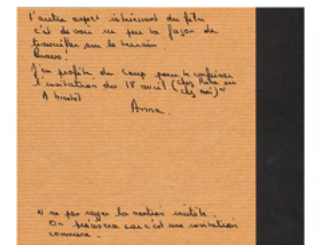 l'autre aspect intéressant du film
c'est de voir un peu la façon de
travailler sur le terrain.
Bravo.
J'en profite du coup pour te confirmer
l'invitation du 18 avril (chez ou
chez moi)*
A bientôt
Anna.
*) ne pas rayer la mention inutile.
On car c'est une invitation
commune.